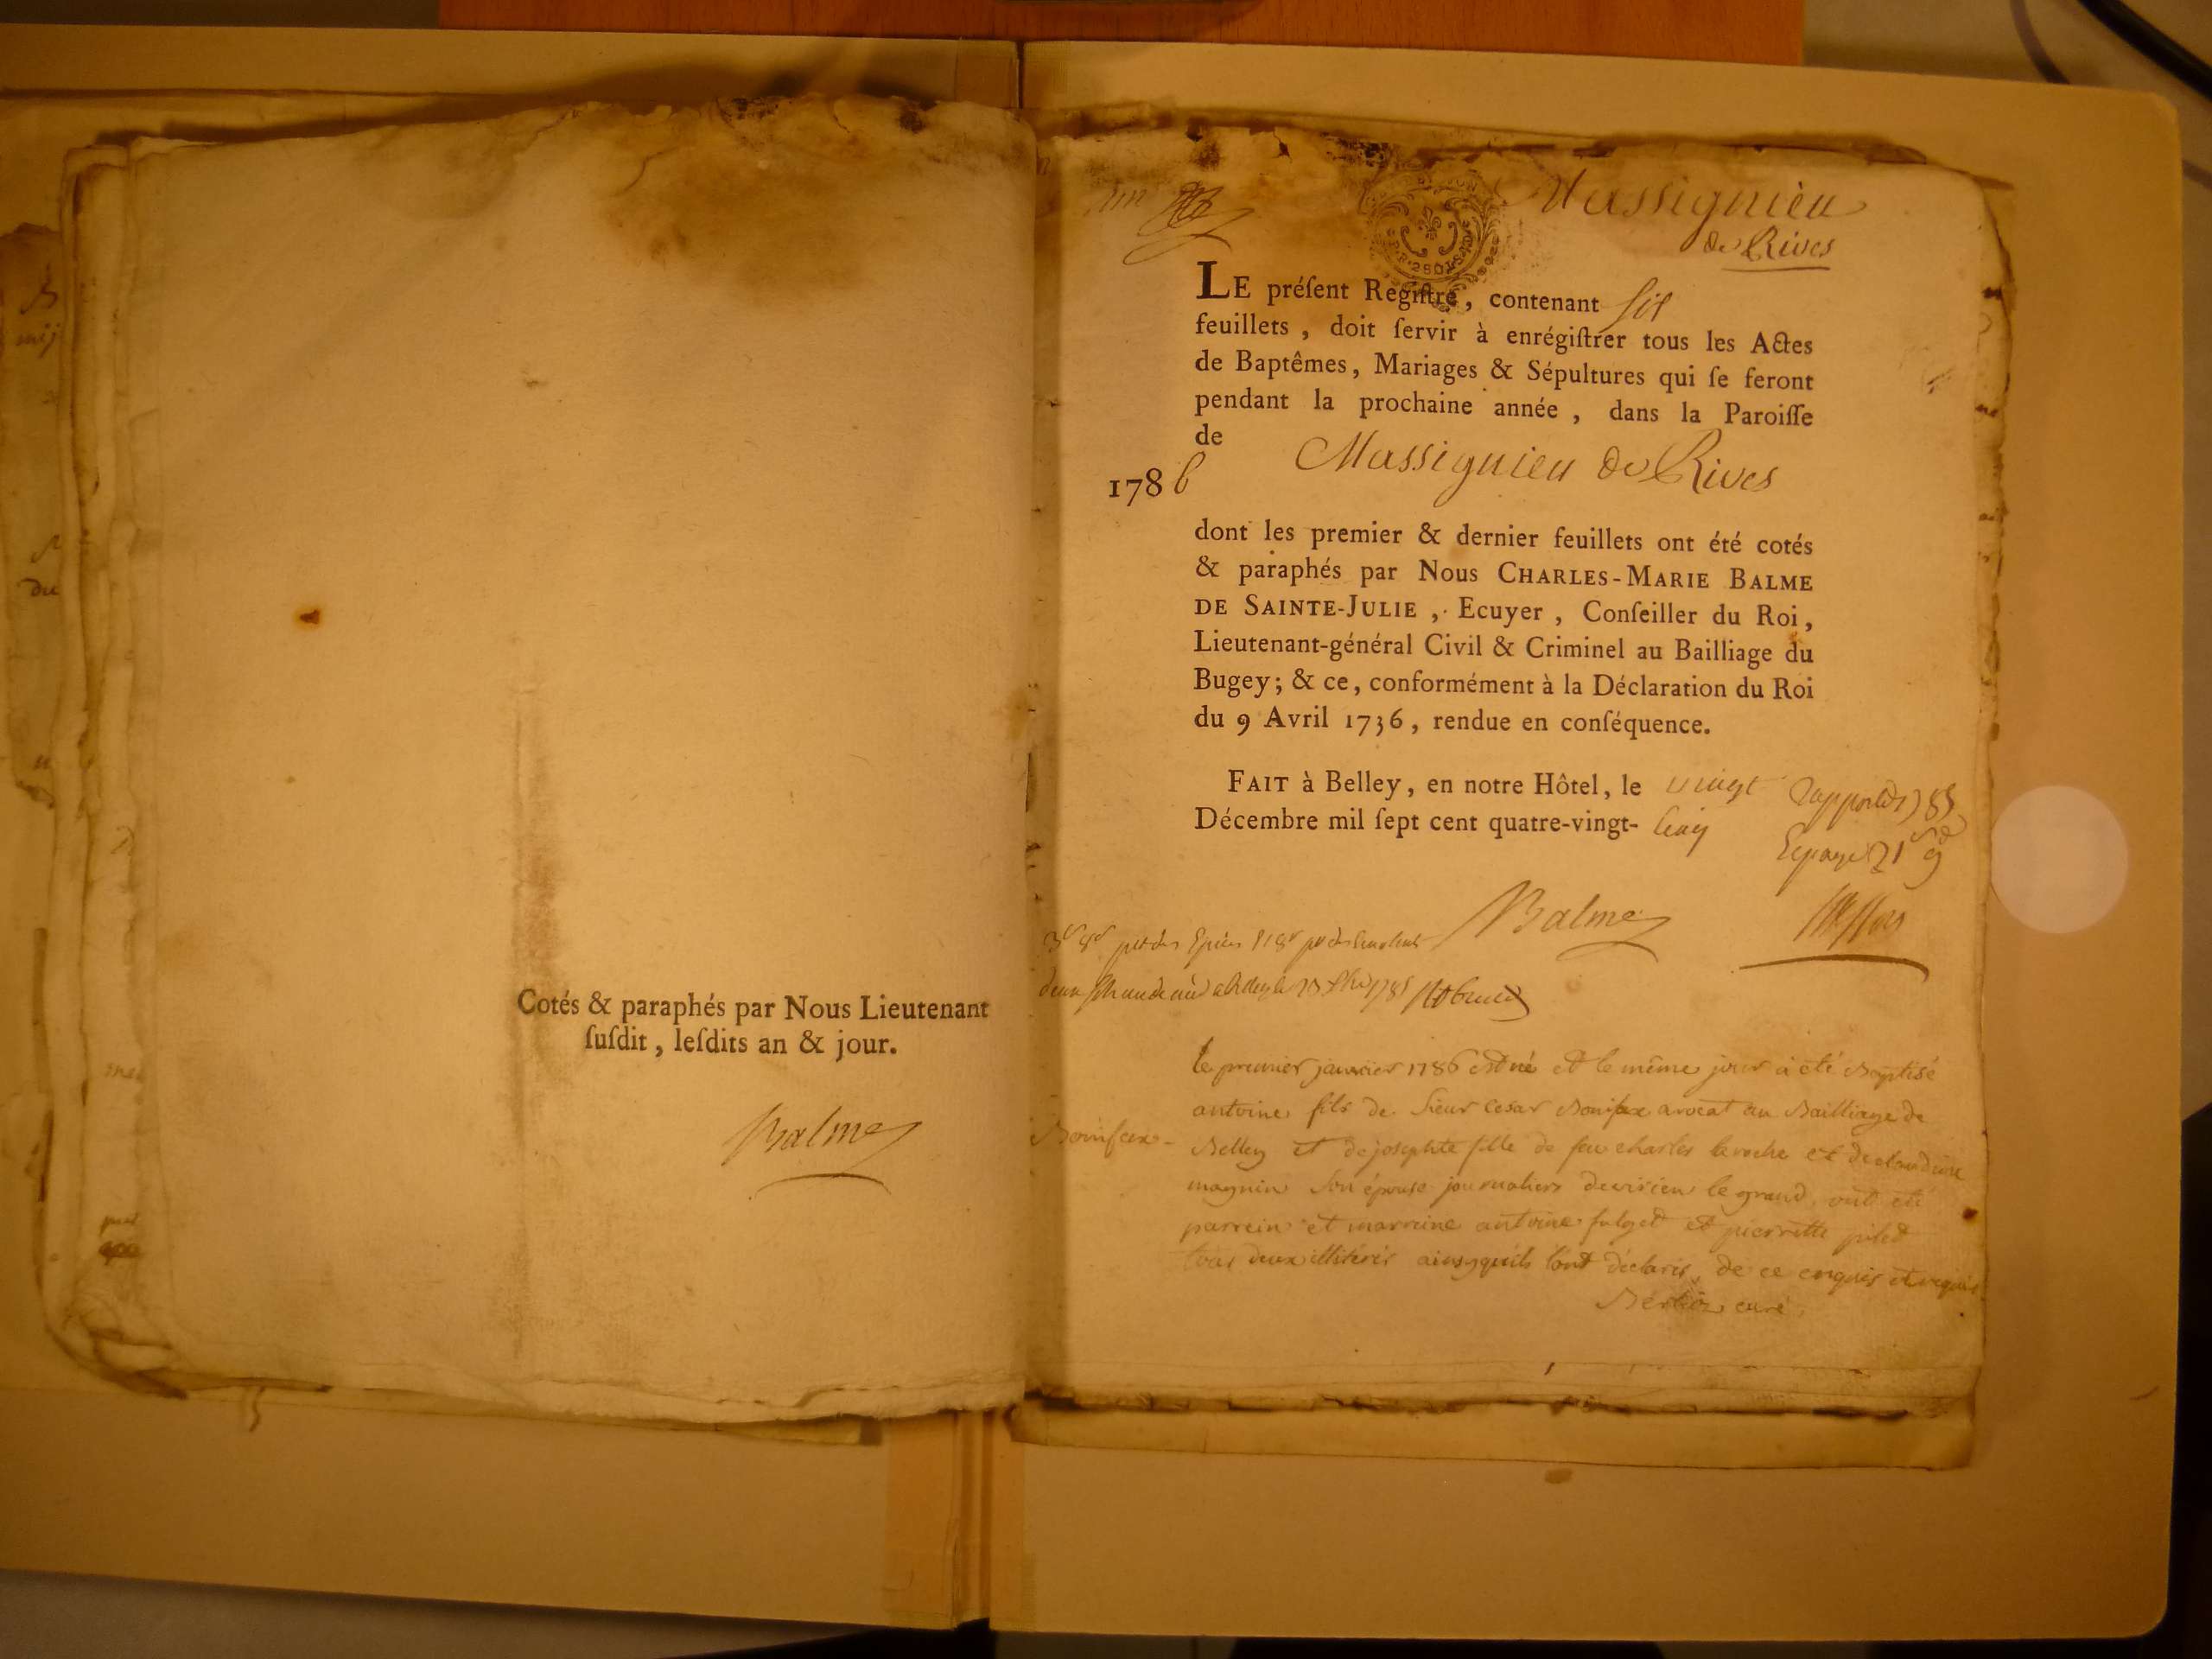 Cotés & paraphés par Nous Lieutenant
ſuſdit, leſdits an & jour.
Balme
Massignieu
de Rives
LE préſent Regiſtre, contenant six
feuillets, doit ſervir à enrégiſtrer tous les Actes
de Baptêmes, Mariages & Sépultures qui ſe feront
pendant la prochaine année, dans la Paroiſſe
de Massignieu de Rives
1786
dont les premier & dernier feuillets ont été cotés
& paraphés par Nous CHARLES-MARIE BALME
DE SAINTE-JULIE, Ecuyer, Conſeiller du Roi,
Lieutenant-général Civil & Criminel au Bailliage du
Bugey; & ce, conformément à la Déclaration du Roi
du 9 Avril 1736, rendue en conſéquence.
FAIT à Belley, en notre Hôtel, le vingt
Décembre mil ſept cent quatre-vingt- cinq
Balme
le premier janvier 1786 est né et le même jour a été Baptisé
antoine fils de sieur cesar Bonifax avocat au Bailliage de
Bonifax
Belley et de josephte fille de feu charles laroche et de claudine
magnin son épouse journaliers le grand, ont été
parrein et marreine antoine et pierrette
tous deux illitérés ainsy quils l'ont déclarés, de ce enquis et requis
curé